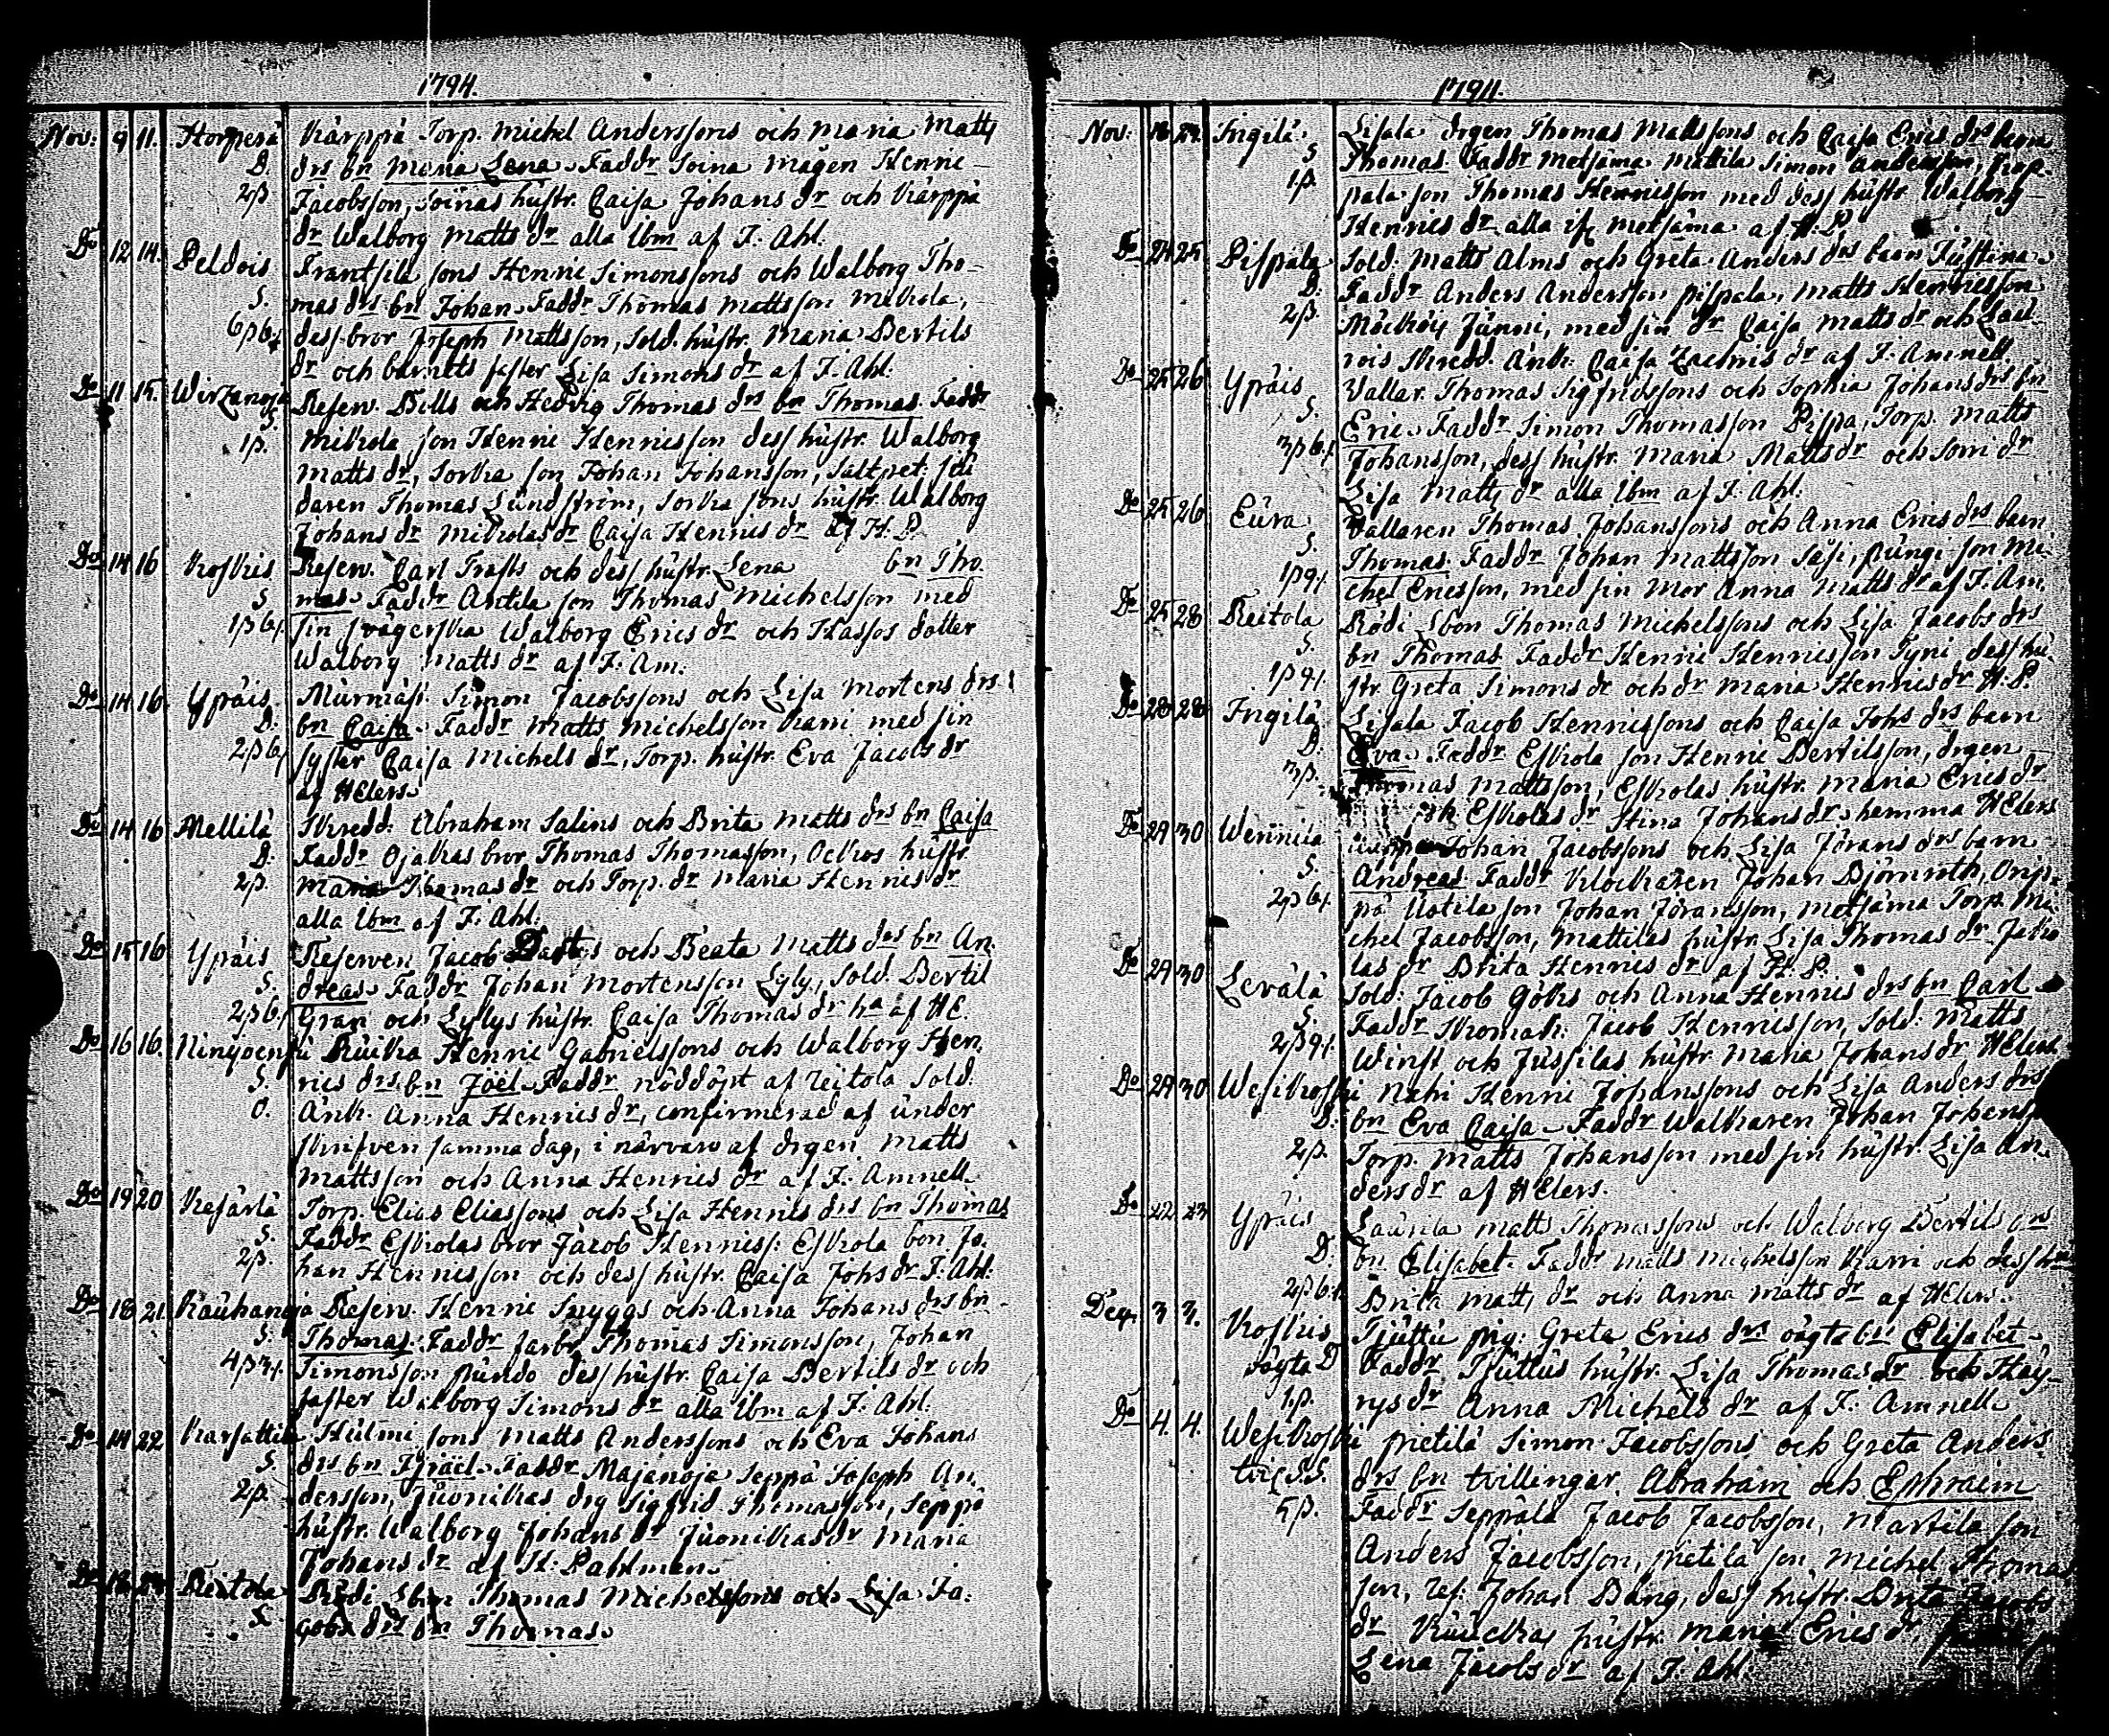 1794.
Nov: 9 11. Korperä Kärppä Torp. Michel Anderssons och Maria Matts
D. drs bn Maria Lena. Faddr Soina mågen Henric
2ß Jacobsson, Soinas hustr. Caisa Johans dr och Kärppä
dr Walborg Matts dr alla ibm af J. Ahl.
Do 12 14. Peldois Frantsila sons Henric Simonssons och Walborg Tho-
S. mas drs bn Johan. Faddr Thomas Mattsson Mikola,
6ß6 dess bror Joseph Mattsson, Sold. hustr. Maria Bertils
dr och barnets faster Lisa Simons dr af J. Ahl.
Do 11 15. Wirzanoja Reserv. Bills och Hedvig Thomas drs bn Thomas. Faddr
S.
1ß. Mikola son Henric Henricsson dess hustr. Walborg
Matts dr, Sorka son Johan Johansson, Saltpet. sju
daren Thomas Lundström, Sorka sons hustr. Walborg
Johans dr Mikolas dr Caisa Henrics dr af H. P.
Do 14 16 Koskis Reserv. Carl Trafts och dess hustr. Lena bn Tho
S. mas. Faddr Antila son Thomas Michelsson med
1ß6 sin svägerska Walborg Erics dr och Hassos dotter
Walborg Matts dr af J. Am:
Do 14 16. Ypäis Murmäst. Simon Jacobssons och Lisa Mortens drs
D. bn Caisa. Faddr Matts Michelsson Karri med sin
2ß6 syster Caisa Michels dr, Torp. hustr. Eva Jacobs dr
af HElers.
Do 14 16 Mellilä Skredd. Abraham Salins och Brita Matts drs bn Caisa
D. Faddr Ojakas bror Thomas Thomasson, Ockos hustr.
2ß. Maria Thomas dr och Torp. dr Maria Henrics dr
alla ibm af J. Ahl.
Do 15 16 Ypäis Reserven Jacob och Beata Matts drs bn An
S. dreas. Faddr Johan Mortensson Lyly, Sold. Bertil
2ß6 Gran och Lylys hustr. Caisa Thomas dr hä af HE.
Do 16 16. Ninijoensu Kuika Henric Gabrielssons och Walborg Hen
S. rics drs bn Joël. Faddr nöddöpt af Reitola Sold.
0. Änk. Anna Henrics dr, confirmerad af under
skrifven samma dag, i närvaro af drgen Matts
Mattsson och Anna Henrics dr af J. Amnell.
Do 19 20 Kesärlä Torp. Elias Eliassons och Lisa Henrics drs bn Thomas
S. Faddr Eskolas bror Jacob Henricss: Eskola bon Jo
2ß. han Henricsson och dess hustr. Caisa Johs dr J. Ahl:
Do 18 21. Kauhanoja Reserv. Henric Snyggs och Anna Johans drs bn
S. Thomas. Faddr farbr Thomas Simonsson, Johan
4ß Simonsson Pundo dess hustr. Caisa Bertils dr och
faster Walborg Simons dr alla ibm af J. Ahl.
Do 14 22 Karsattila Hulmi sons Matts Anderssons och Eva Johans
S. drs bn Israël. Faddr Majanoja Seppä Joseph An
2ß. dersson, Juonikas drg Sigfrid Thomasson, Seppä
hustr. Walborg Johans dr Juonikas dr Maria
Johans dr af H: Pahlman.
Do Reitola Rödi Sbon Thomas Michelssons och Lisa Ja:
S. cobs drs bn Thomas.
1794.
Nov: Ingilä Lisala drgen Thomas Mattssons och Caisa Erics drs barn
S. Thomas. Faddr Metsäma Mattila Simon Andersson,
1ß. pala son Thomas Henricsson med dess hustr Walborg
Henrics dr alla ifr. Metsäma af H. P.
Do 24 25 Pispala Sold. Matts Alms och Greta Anders drs barn Justina
D. Faddr Anders Andersson Pispala, Matts Henricsson
2ß. Junni, med sin dr Caisa Matts dr och Lau
rois Skredd. Änk: Caisa Zachris dr af J. Amnell.
Do 25 26 Ypäis Vallar. Thomas Sigfridssons och Sophia Johans drs bn
S. Eric. Faddr Simon Thomasson Pispa, Torp. Matts
3ß6 Johansson, dess hustr. Maria Matts dr och Sorri dr
Lisa Matts dr alla ibm af J. Ahl.
Do 25 26 Eura Vallaren Thomas Johanssons och Anna Erics drs barn
S. Thomas. Faddr Johan Mattsson Säsi, Pungi son Mi
1ß9 chel Ericsson, med sin mor Anna Matts dr af J. Am.
Do 25 28 Reitola Rödi Sbon Thomas Michelssons och Lisa Jacobs drs
S. bn Thomas Faddr Henric Henricsson Tyni dess hu
1ß9 str. Greta Simons dr och dr Maria Henrics dr H: P.
Do 28 28 Ingilä Lisala Jacob Henricssons och Caisa Johs drs barn
D. Eva. Faddr Eskola son Henric Bertilsson, drgen
3ß. Thomas Mattsson, Eskolas hustr. Maria Erics dr
Eskolas dr Stina Johans dr hemma HElers
Do 29 30 Wennila Johan Jacobssons och Lisa Jörans drs barn
S. Andreas. Faddr Klockaren Johan Björnroth, Orip
2ß6 pä Uotila son Johan Jöransson, Metsäma Torp. Mi
chel Jacobsson, Mattilas hustr. Lisa Thomas dr
las dr Brita Henrics dr af H. P.
Do 29 30 Levälä Sold: Jacob Göks och Anna Henrics drs bn Carl
S. Faddr Skomak: Jacob Henricsson, Sold: Matts
2ß9 Winst och Jussilas hustr Maria Johans dr HElers
Do 29 30 Wesikoski Nahi Henric Johanssons och Lisa Anders drs
D. bn Eva Caisa. Faddr Walkaren Johan Johanss
2ß. Torp. Matts Johansson med sin hustr. Lisa An
ders dr af HElers.
Do 22 23 Ypäis Laurila Matts Thomassons och Walborg Bertils drs
D. bn Elisabet. Faddr Matts Michelsson Karri och dess hr
2ß6 Brita Matts dr och Anna Matts dr af HElers.
Dec. 3 3. Koskis Tjuttu pig: Greta Erics drs oägta bn Elisabet
oägta D Faddr. Tjuttus hustr. Lisa Thomas dr och Häy
1ß. rys dr Anna Michels dr af J. Amnell
Do 4. 4. Wesikoski Pietilä Simon Jacobssons och Greta Anders
tvil S.S. drs bn tvillingar Abraham och Ephraim
5ß. Faddr Seppälä Jacob Jacobsson, Martila son
Anders Jacobsson, Pietilä son Michel Thomas
son, res. Johan Bång, dess hustr. Brita Jacobs
dr hustr. Maria Erics dr
Lena Jacobs dr af J. Ahl.